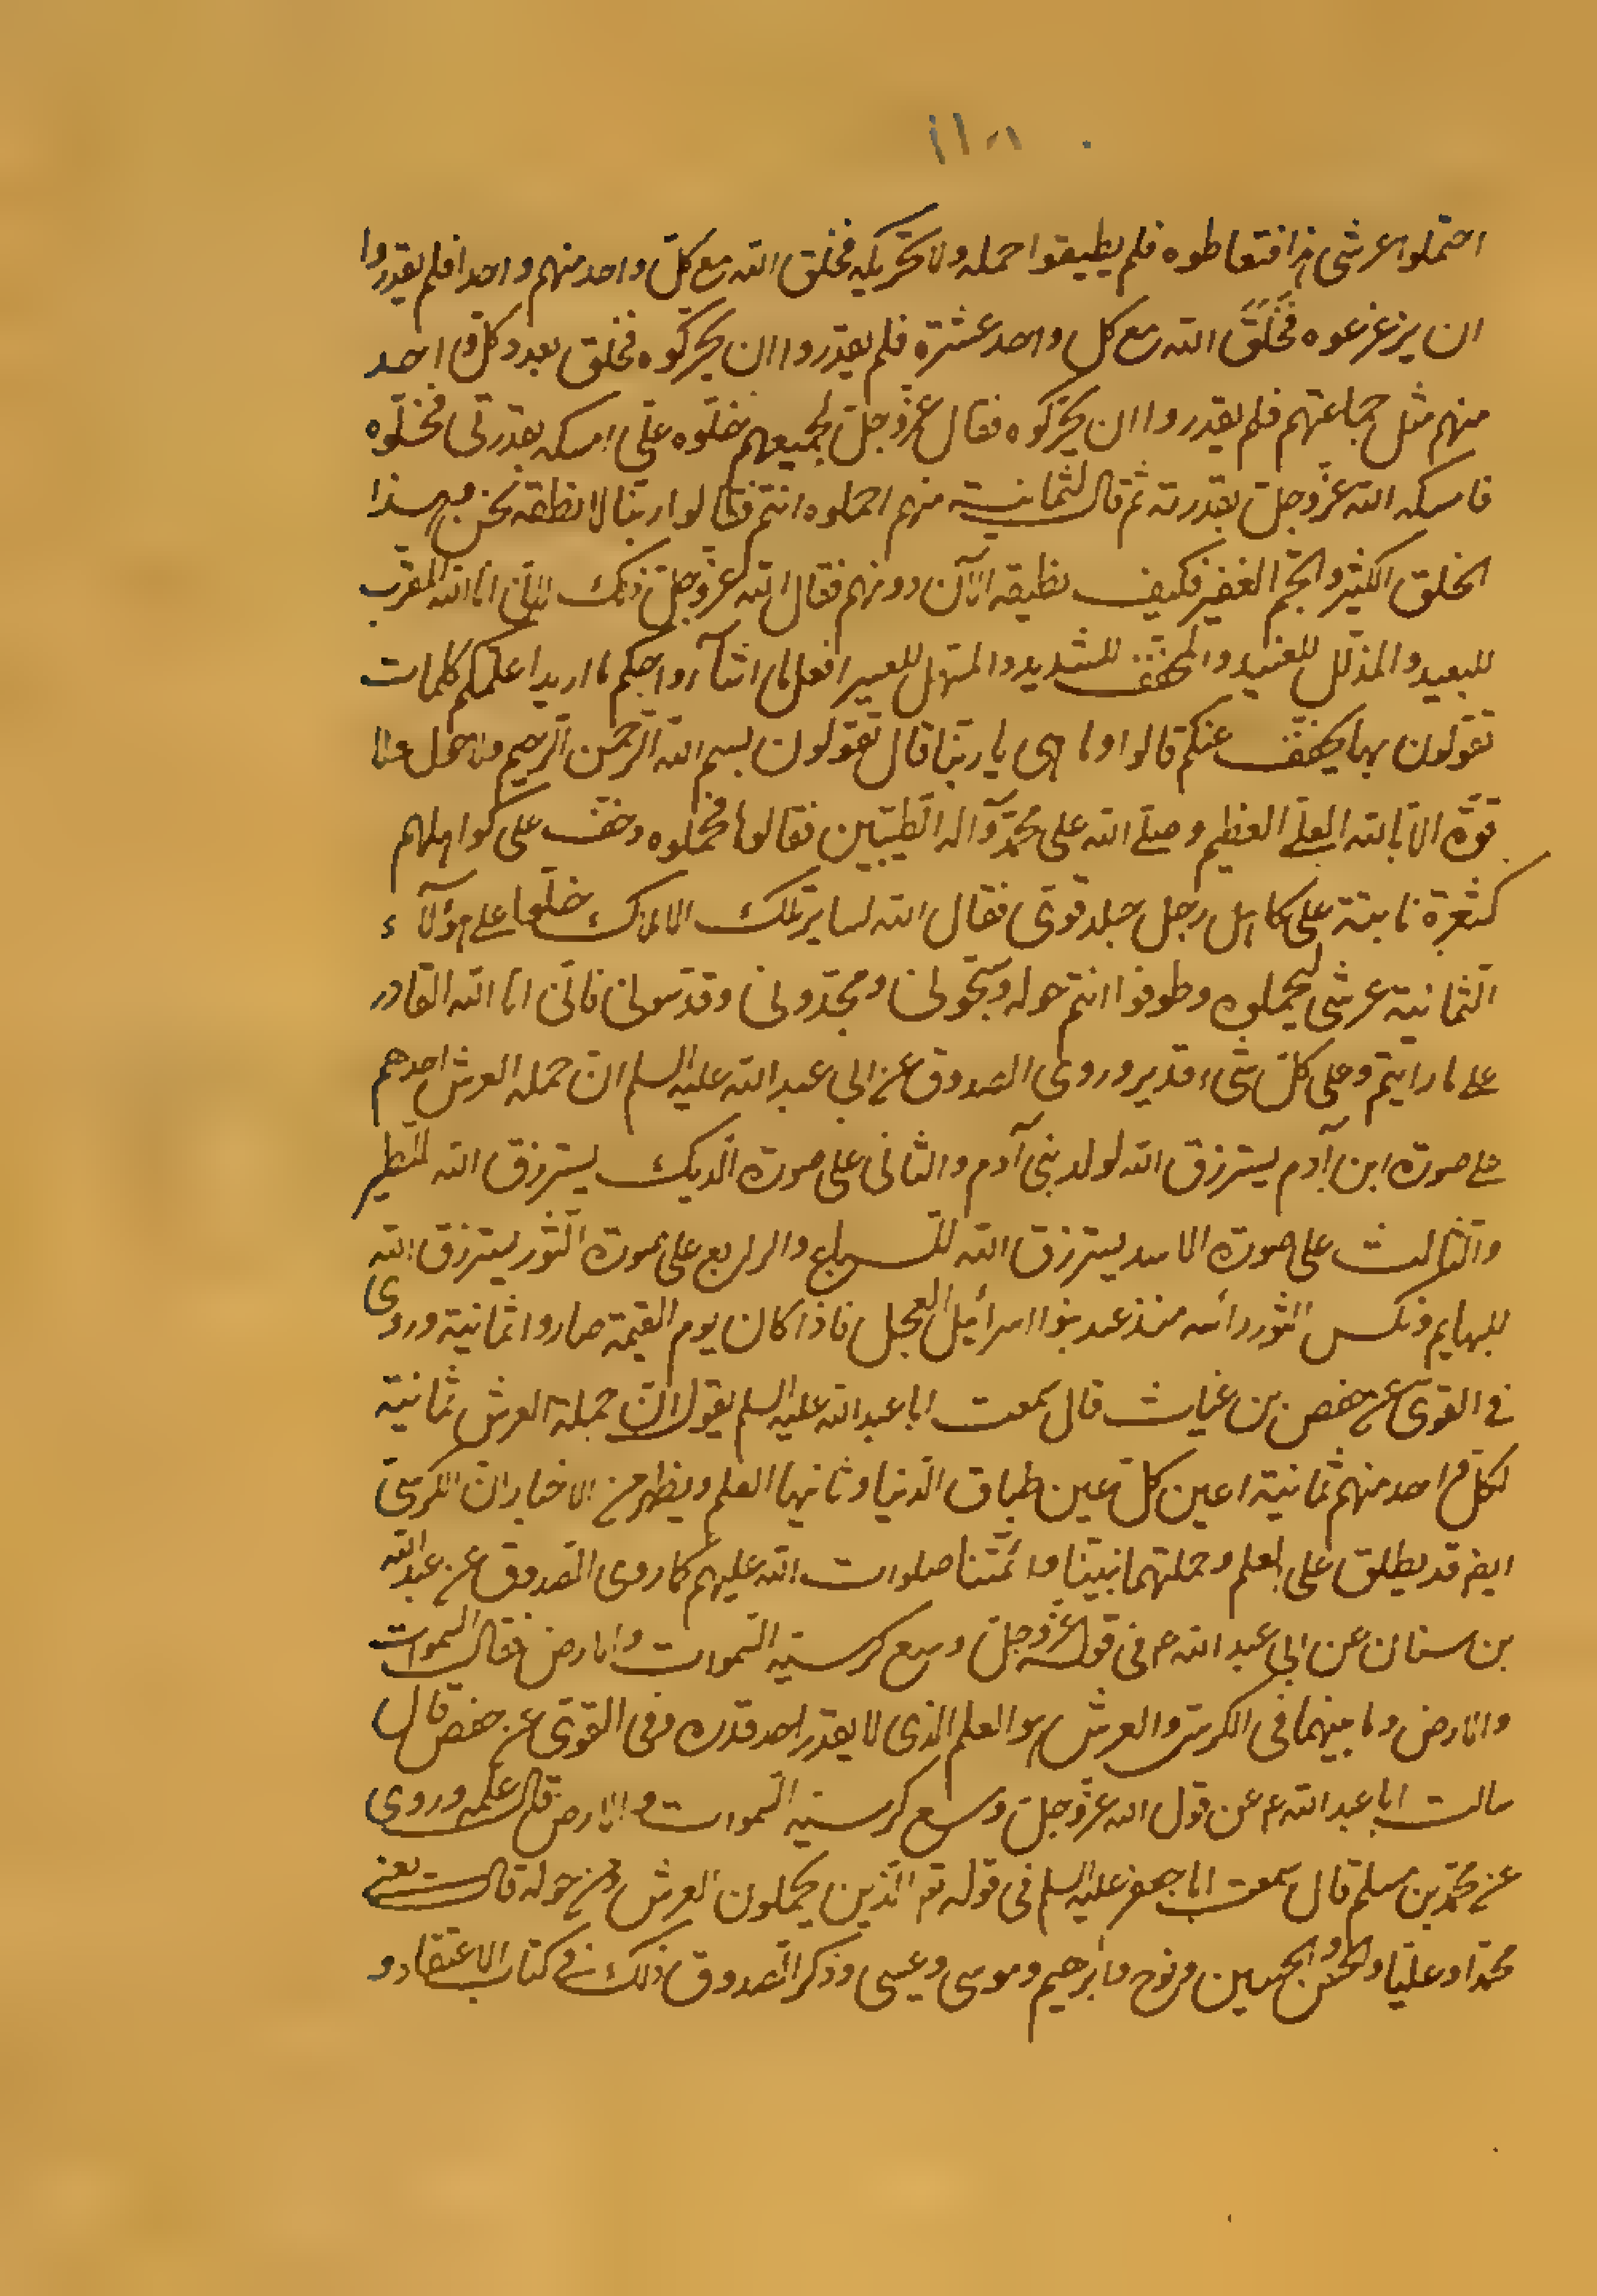 احتملوا عرشى هذا فتعاطوه فلم يطيقوا حمله ولا تحريكه فخلق الله مع كلّ واحد منهم واحدا فلم يقدروا
ان يزعزعوه فخلق الله مع كل واحد عشرة فلم يقدروا ان يحركوه فخلق بعدد كل واحد
منهم مثل جماعتهم فلم يقدروا ان يحرّكوه فقال عزّ وجلّ لجميعهم خلّوه علىّ امسكه بقدرتى فخلّوه
فامسكه الله عزّ وجلّ بقدرته ثم قال لثمانية منهم احملوه انتم فقالوا ربّنا لا نطقه نحن وهذا
الخلق الكثير والجمّ الغفير فكيف نطيقه الآن دونهم فقال الله عزّ وجلّ ذلك لانّى انا الله المقرّب
للبعيد والمذلّل للعنيد والمخفّف للشديد والمسهّل للعسير افعل ما اشآء واحكم ما اريد اعلمكم كلمات
تقولون بها يخفّف عنكم قالوا وما هى يا ربّنا قال تقولون بسم الله الرّحمن الرّحيم ولا حول ولا
قوّة الا بالله العلىّ العظيم وصلّى الله على محمّد وآله الطّيّبين فقالوها فحملوه وخفّ على كواهلهم
كشعرة نابتة على كاهل رجل جلد قوىّ فقال الله لساير تلك الاملاك خلّوا على هؤلآء
الثمانية عرشى ليحملوه وطوفوا انتم حوله وسبّحونى ومجّدونى وقدّسونى فانّى انا الله القادر
على ما رايتم وعلى كلّ شىء قدير وروى الصدوق عن ابى عبد الله عليه السلم ان حملة العرش احدهم
على صورة ابن آدم يسترزق الله لولد بنى آدم والثانى على صورة الدّيك يسترزق الله للطير
والثالث على صورة الاسد يسترزق الله للسباع والرابع على صورة الثّور يسترزق الله
للبهايم ونكس الثور رأسه منذ عبد بنوا اسرائيل العجل فاذا كان يوم القيمة صاروا ثمانية وروى
فى القوىّ عن حفص بن غياث قال سمعت ابا عبد الله عليه السلم يقول انّ حملة العرش ثمانية
لكلّ واحد منهم ثمانية اعين كلّ عين طباق الدّنيا وثانيها العلم ويظهر من الاخبار انّ الكرسىّ
ايضا قد يطلق على العلم وحملتهما نبيّنا وائمّتنا صلوات الله عليهم كما روى الصدوق عن عبد الله
بن سنان عن ابى عبد الله ع فى قوله عزّ وجلّ وسع كرسيّه السّموات والارض فقال السموات
والارض وما بينهما فى الكرسى والعرش هو العلم الذى لا يقدر احد قدره وفى القوى عن حفص قال
سالت ابا عبد الله ع عن قول الله عزّ وجلّ وسع كرسيّه السّموات والارض قال علمه وروى
عن محمّد بن مسلم قال سمعت ابا جعفر عليه السلم فى قوله تع الّذين يحملون العرش ومن حوله قال يعنى
محمّدا وعليّا والحسن والحسين ونوح وابرهيم وموسى وعيسى وذكر الصّدوق ذلك فى كتاب الاعتقاد و